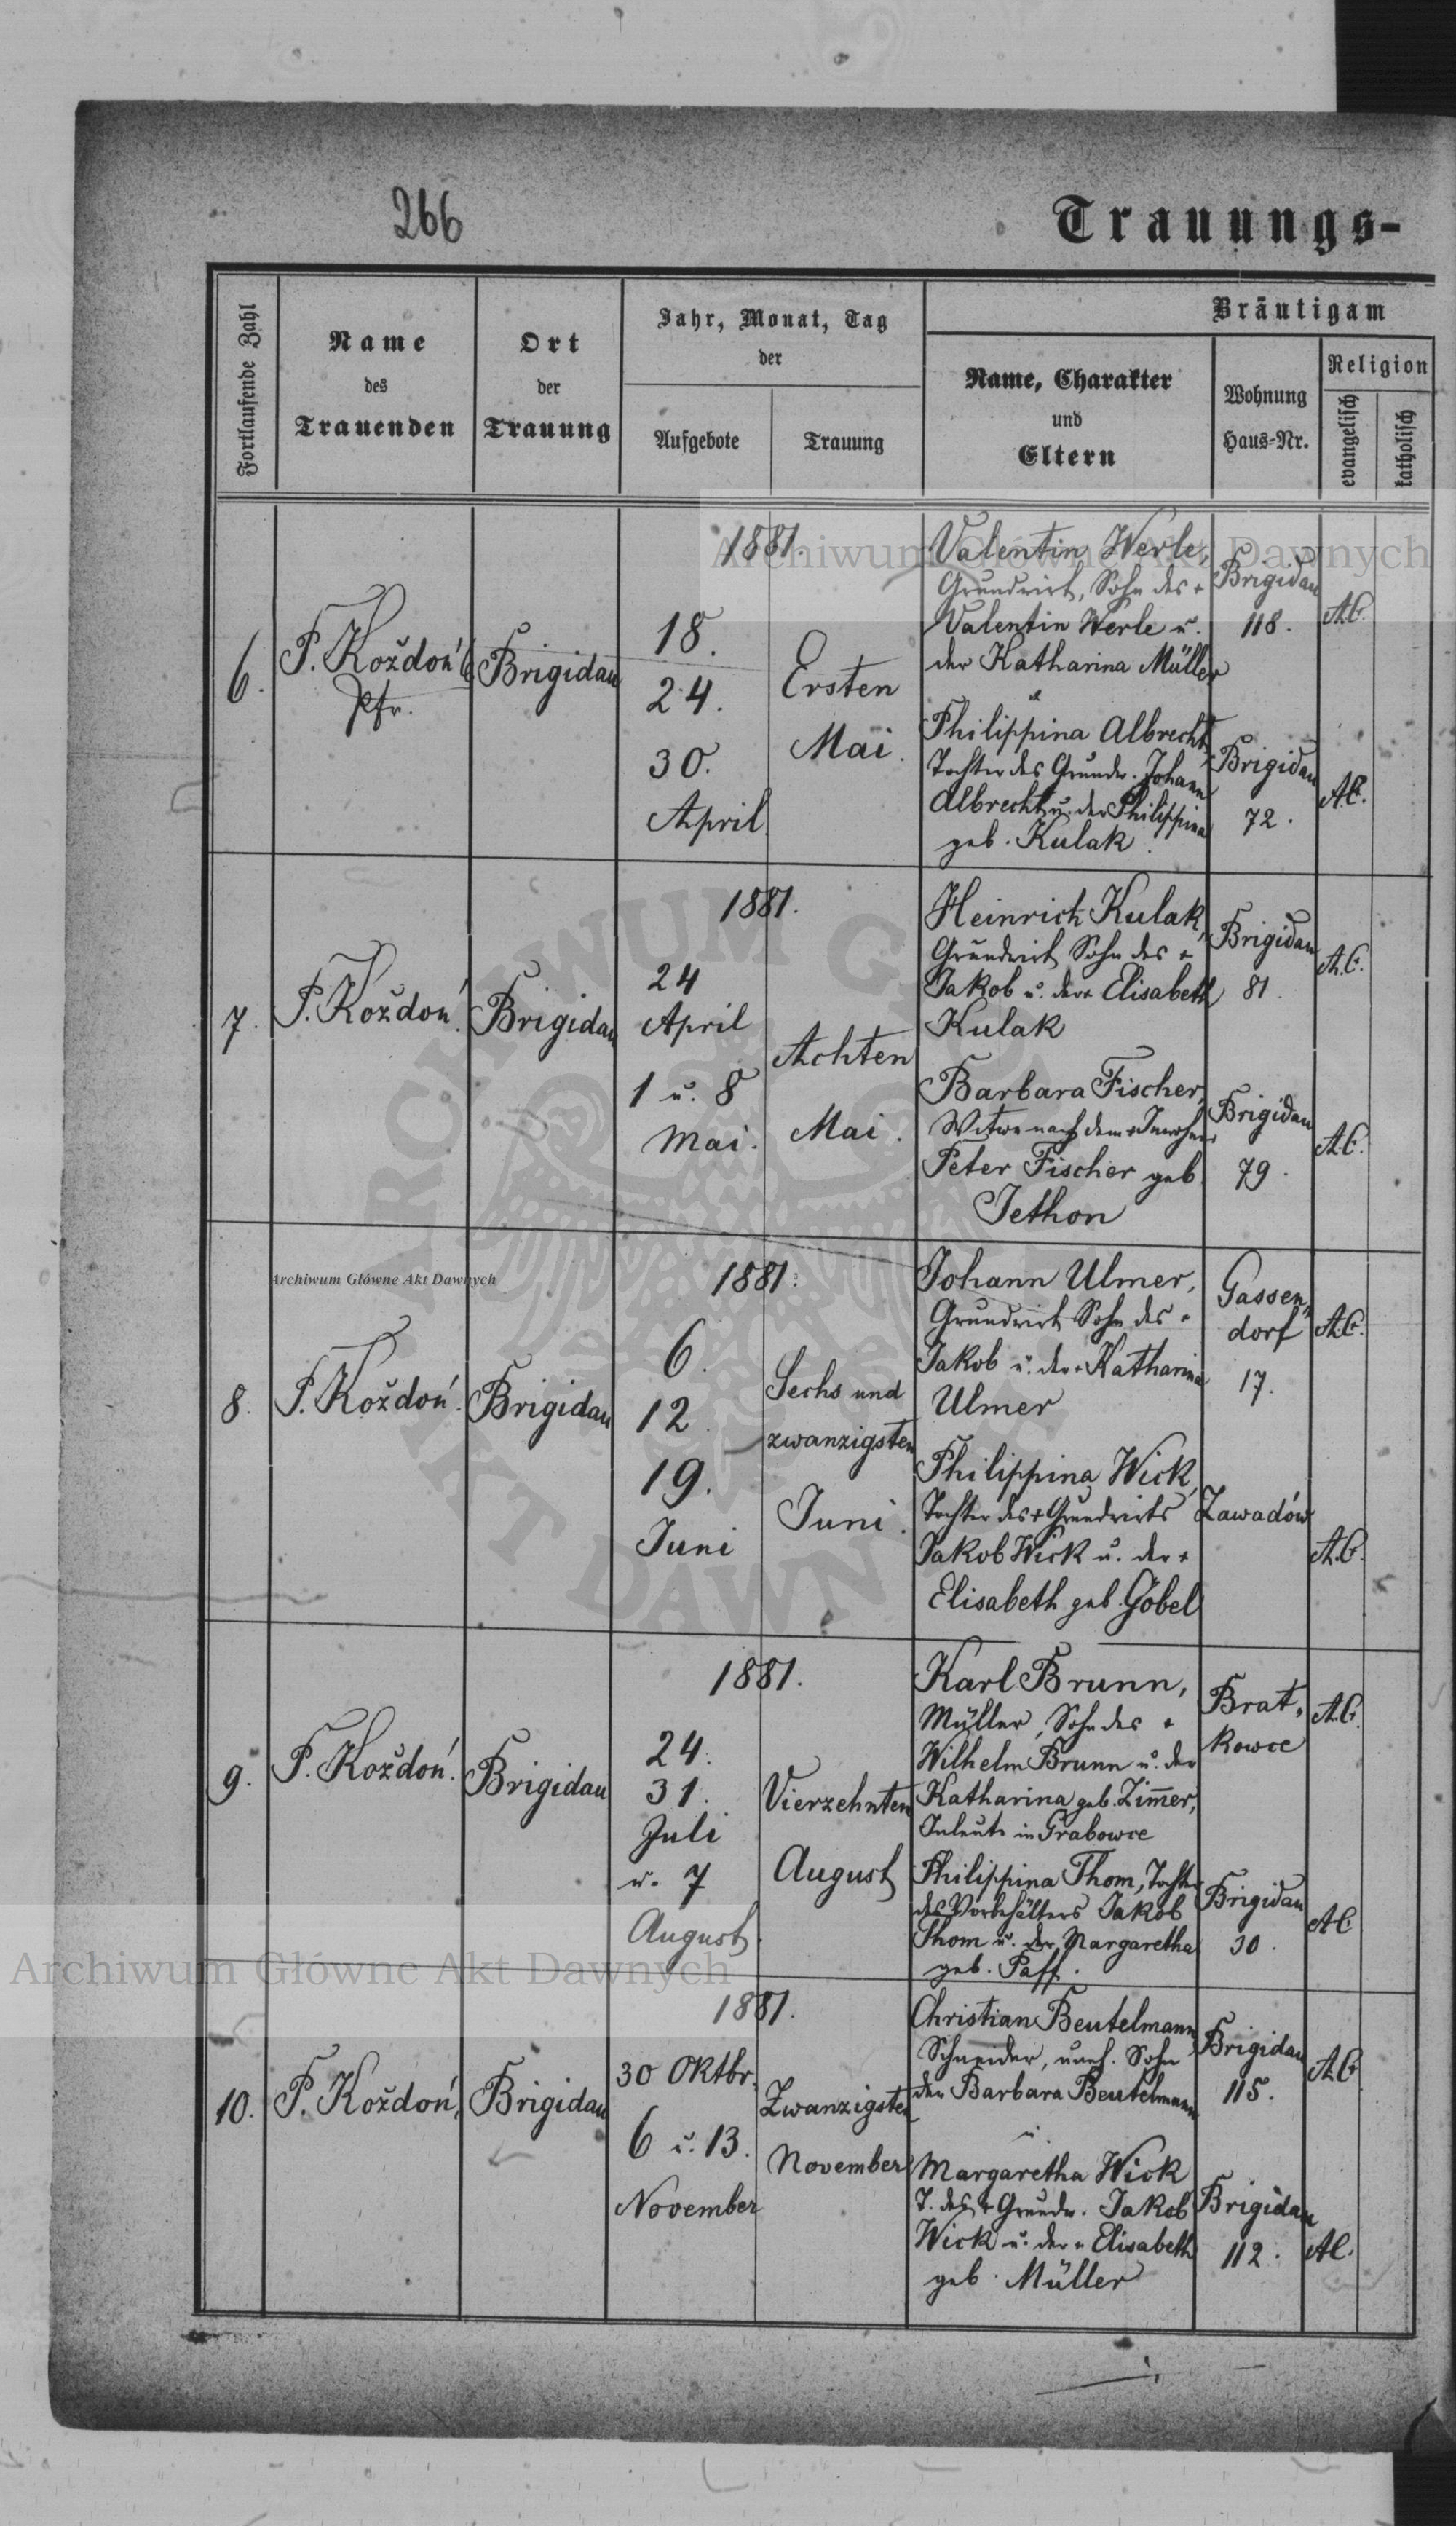 266
Trauungs-
Fortlaufende Zahl
Name
des
Trauenden
Ort
der
Trauung
Jahr, Monat, Tag
der
Aufgebote
Trauung
Bräutigam
Name, Charakter
und
Eltern
Wohnung
Haus-Nr.
Religion
evangelisch
katholisch
6.
P. Koždoń
Pfr.
Brigidau
1881.
18.
24.
30.
April
Ersten
Mai.
Valentin Werle,
Grundwirt, Sohn des +
Valentin Werle u.
der Katharina Müller
Brigidau
118.
A.C.
u
Philippina Albrecht,
Tochter des Grundw. Johann
Albrecht u. der Philippina
geb. Kulak.
Brigidau
72.
A.C.
7.
P. Koždoń.
Brigidau
1881.
24
April
1 u. 8
Mai.
Achten
Mai.
Heinrich Kulak,
Grundwirt Sohn des +
Jakob u. der + Elisabeth
Kulak
Brigidau
81.
A.C.
Barbara Fischer,
Witwe nach dem + Inwohner
Peter Fischer geb.
Jethon
Brigidau
79.
A.C.
8.
P. Koždoń.
Brigidau
1881.
6.
12.
19.
Juni
Sechs und
zwanzigsten
Juni.
Johann Ulmer,
Grundwirt Sohn des +
Jakob u. der + Katharina
Ulmer
Gassen„
dorf
17.
A.C.
Philippina Wick,
Tochter des + Grundwirts
Jakob Wick u. der +
Elisabeth geb. Göbel
Zawadów
A.C.
9.
P. Koždoń.
Brigidau
1881.
24.
31.
Juli
u. 7
August.
Vierzehnten
August
Karl Brunn,
Müller, Sohn des +
Wilhelm Brunn u. der
Katharina geb. Zim̄er,
Inleute in Grabowce
Brat„
kowce
A.C.
Philippina Thom, Tochter
des Vorbehälters Jakob
Thom u. der Margaretha
geb. Paff.
Brigidau
30.
A.C.
10.
P. Koždoń,
Brigidau
1881.
30 Oktbr.
6 u. 13.
November
Zwanzigsten
November
Christian Beutelmann
Schneider, uneh. Sohn
der Barbara Beutelmann
Brigidau
115.
A.C.
u
Margaretha Wick
T. des + Grundw. Jakob
Wick u. der + Elisabeth
geb. Müller
Brigidau
112.
A.C.
Archiwum Główne Akt Dawnych
Archiwum Główne Akt Dawnych
Archiwum Główne Akt Dawnych
ARCHIWUM GŁÓWNE AKT DAWNYCH